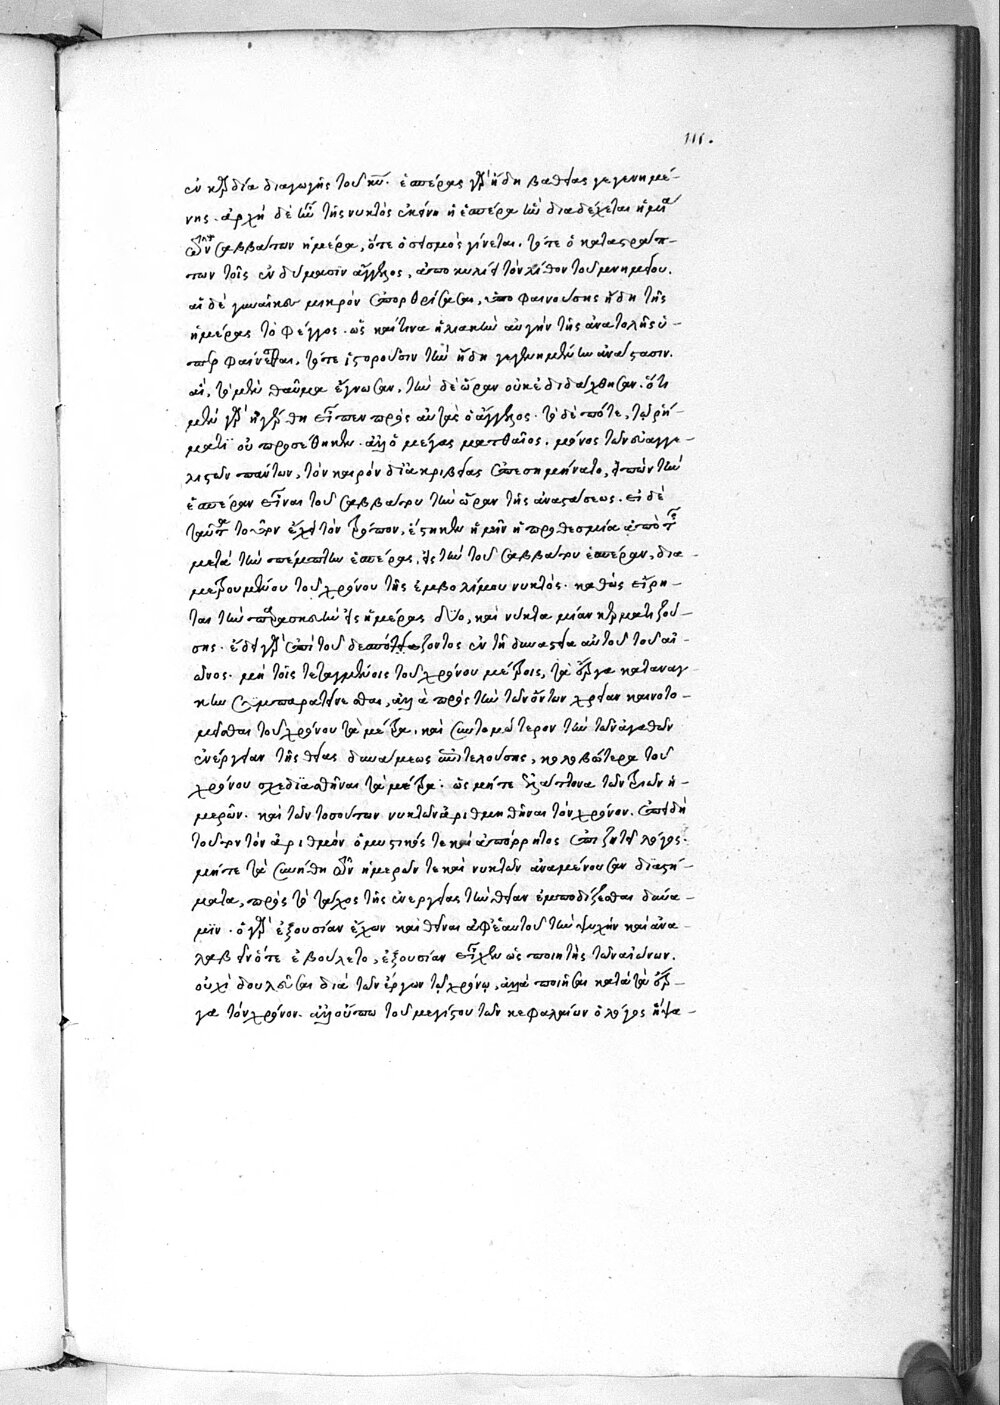 111.
ἐν καρδία διαγωγῆς τοῦ κυ. ἑσπέρας γὰρ ἤδη βαθείας γεγενημέ-
νης. ἀρχὴ δὲ τῆς νυκτὸς ἐκείνη ἡ ἑσπέρα ἣν διαδέχεται ἡ μία
τῶν σαββάτων ἡμέρα, ὅτε ὁ σεισμὸς γίνεται. τότε ὁ καταστράπ-
των τοῖς ἐνδύμασιν ἄγγελος, ἀποκυλίει τὸν λίθον τοῦ μνημείου.
αἱ δὲ γυναῖκες μικρὸν ἐπορθρίσασαι, ὑποφαινούσης ἤδη τῆς
ἡμέρας τὸ φέγγος. ὡς καί τινα ἡλιακὴν αὐγὴν τῆς ἀνατολῆς ὑ-
περφαίνεσθαι, τότε ἱστοροῦσιν τὴν ἤδη γεγενημένην ἀνάστασιν.
αἳ, τὸ μὲν θαῦμα ἔγνωσαν, τὴν δὲ ὥραν οὐκ ἐδιδάχθησαν. ὅτι
μὲν γὰρ ἠγέρθη εἶπεν πρὸς αὐτὰς ὁ ἄγγελος. τὸ δὲ πότε, τῷ ῥή-
ματι οὐ προσέθηκεν. ἀλλ' ὁ μέγας ματθαῖος, μόνος τῶν εὐαγγε-
λιστῶν πάντων, τὸν καιρὸν δι' ἀκριβείας ἐπεσημήνατο, εἰπὼν τὴν
ἑσπέραν εἶναι τοῦ σαββάτου τὴν ὥραν τῆς ἀναστάσεως. εἰ δὲ
ταῦτα τοῦτον ἔχει τὸν τρόπον, ἕστηκεν ἡμῖν ἡ προθεσμία ἀπὸ τῆς
μετὰ τὴν πέμπτην ἑσπέρας, εἰς τὴν τοῦ σαββάτου ἑσπέραν, δια-
μετρουμένου τοῦ χρόνου τῆς ἐμβολίμου νυκτὸς. καθὼς εἴρη-
ται τὴν παρασκευὴν εἰς ἡμέρας δύο, καὶ νύκτα μίαν κερματιζού-
σης. ἔδει γὰρ ἐπὶ τοῦ δεσπόζοντος ἐν τῇ δυναστεία αὐτοῦ τοῦ αἰ-
ῶνος. μὴ τοῖς τεταγμένοις τοῦ χρόνου μέτροις, τὰ ἔργα κατ' ἀνάγ-
κην συμπαρατείνεσθαι, ἀλλὰ πρὸς τὴν τῶν ὄντων χρείαν καινοτο-
μεῖσθαι τοῦ χρόνου τὰ μέτρα. καὶ συντομώτερον τὴν τῶν ἀγαθῶν
ἐνέργειαν τῆς θείας δυνάμεως ἐπιτελούσης, κολοβώτερα τοῦ
χρόνου σχεδιασθῆναι τὰ μέτρα. ὡς μήτε ἐλάττονα τῶν τριῶν ἡ-
μερῶν. καὶ τῶν τοσούτων νυκτῶν ἀριθμηθῆναι τὸν χρόνον. ἐπειδὴ
τοῦτον τὸν ἀριθμὸν ὁ μυστικός τε καὶ ἀπόρρητος ἐπιζητεῖ λόγος.
μήτε τὰ συνήθη τῶν ἡμερῶν τε καὶ νυκτῶν ἀναμένουσαν διαστή-
ματα, πρὸς τὸ τάχος τῆς ἐνεργείας τὴν θείαν ἐμποδίζεσθαι δύνα-
μιν. ὁ γὰρ ἐξουσίαν ἔχων καὶ θεῖναι ἀφ' ἑαυτοῦ τὴν ψυχὴν καὶ ἀνα-
λαβεῖν ὅτε ἐβούλετο, ἐξουσίαν εἶχεν ὡς ποιητὴς τῶν αἰώνων.
οὐχὶ δουλεῦσαι διὰ τῶν ἔργων τῷ χρόνῳ, ἀλλὰ ποιῆσαι κατὰ τὰ ἔρ-
γα τὸν χρόνον. ἀλλ' οὔπω τοῦ μεγίστου τῶν κεφαλαίων ὁ λόγος ἥψα-